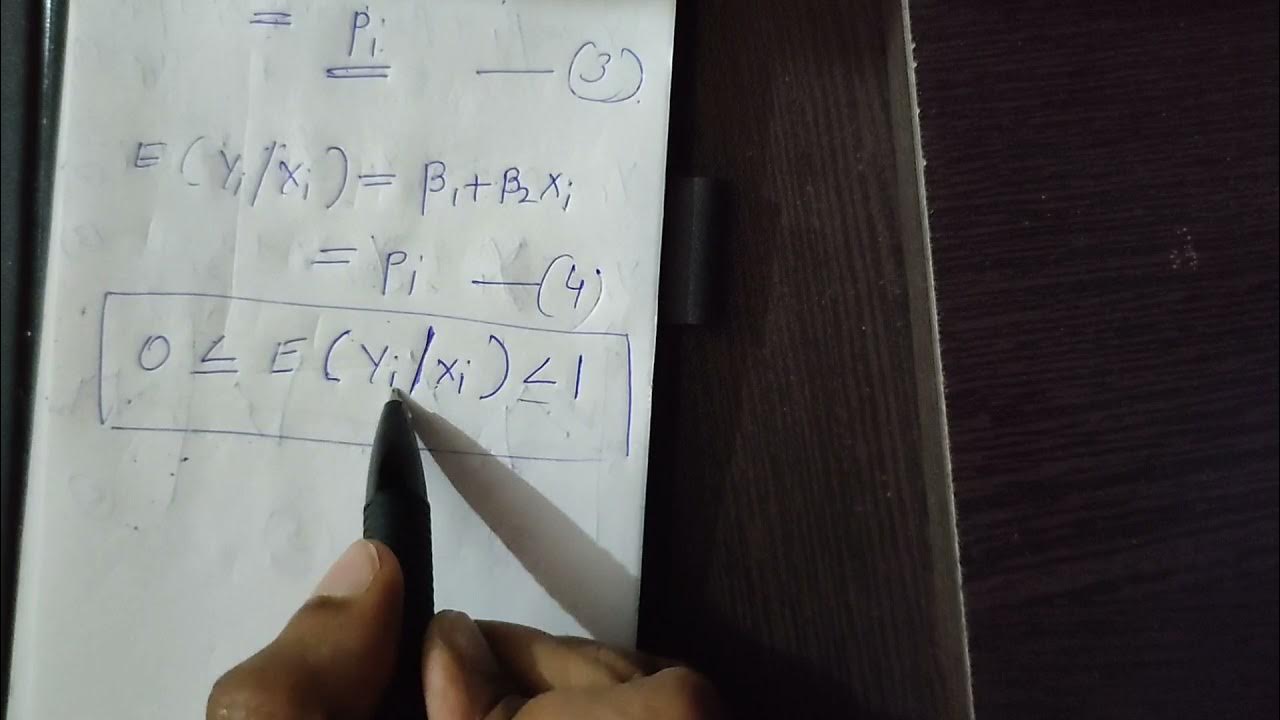 = Pi — (3)
E(Yi/Xi) = β1+β2Xi
= Pi — (4)
0 ≤ E(Yi/Xi) ≤ 1